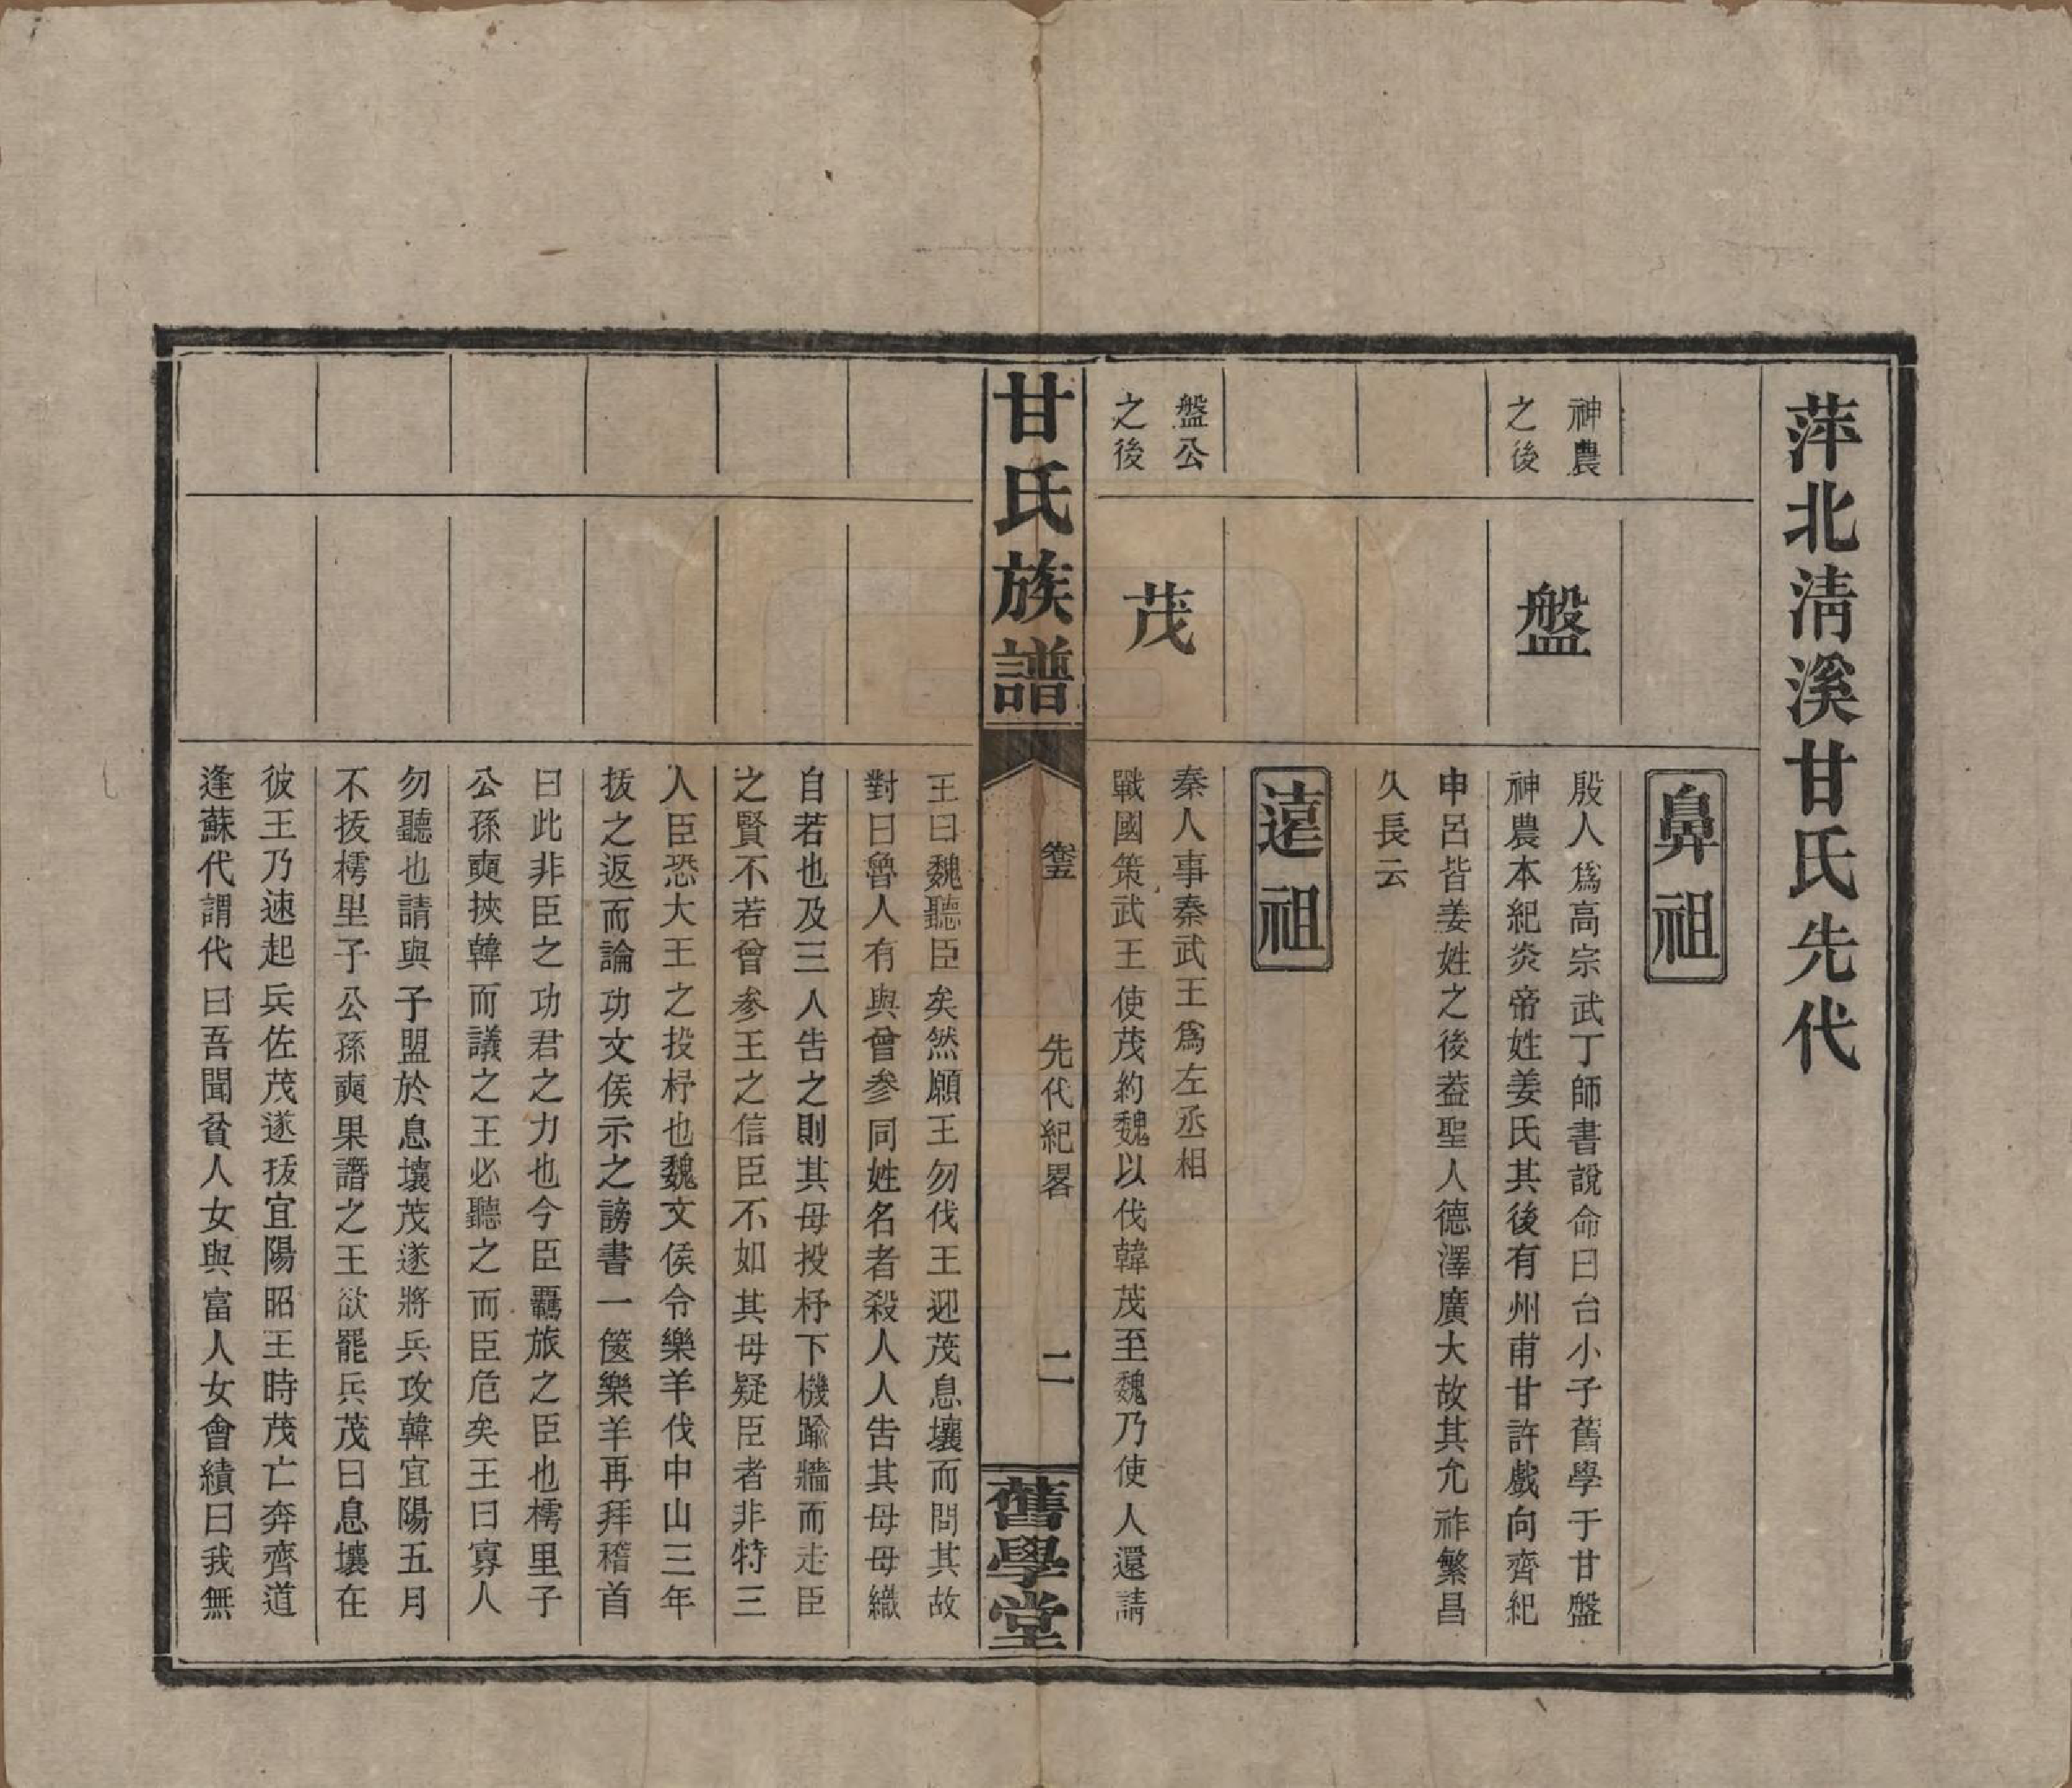 萍北清溪甘氏先代
鼻祖
神農
之後
盤
殷人爲高宗武丁師書說命曰台小子舊學于甘盤
神農本紀炎帝姓姜氏其後有州甫甘許戲向齊紀
申呂皆姜姓之後葢聖人德澤廣大故其允祚繁昌
久長云
遠祖
盤公
之後
茂
秦人事秦武王爲左丞相
戰國策武王使茂約魏以伐韓茂至魏乃使人還請
甘氏族譜
卷五
先代紀畧
二
舊學堂
王曰魏聽臣矣然願王勿伐王迎茂息壤而問其故
對曰魯人有與曾参同姓名者殺人人告其母母織
自若也及三人告之則其母投杼下機踰牆而走臣
之賢不若曾参王之信臣不如其母疑臣者非特三
人臣恐大王之投杼也魏文侯令樂羊伐中山三年
拔之返而論功文侯示之謗書一篋樂羊再拜稽首
曰此非臣之功君之力也今臣羈旅之臣也樗里子
公孫奭挾韓而議之王必聽之而臣危矣王曰寡人
勿聽也請與子盟於息壤茂遂將兵攻韓宜陽五月
不拔樗里子公孫奭果譖之王欲罷兵茂曰息壤在
彼王乃速起兵佐茂遂拔宜陽昭王時茂亡奔齊道
逢蘇代謂代曰吾聞貧人女與富人女會績曰我無